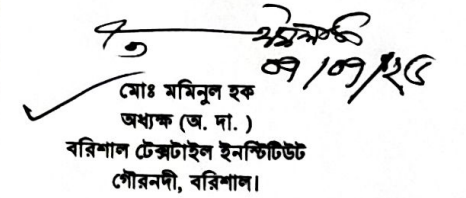 ০৭/০৭/২৫
মোঃ মমিনুল হক
অধ্যক্ষ (অ. দা. )
বরিশাল টেক্সটাইল ইনস্টিটিউট
গৌরনদী, বরিশাল।